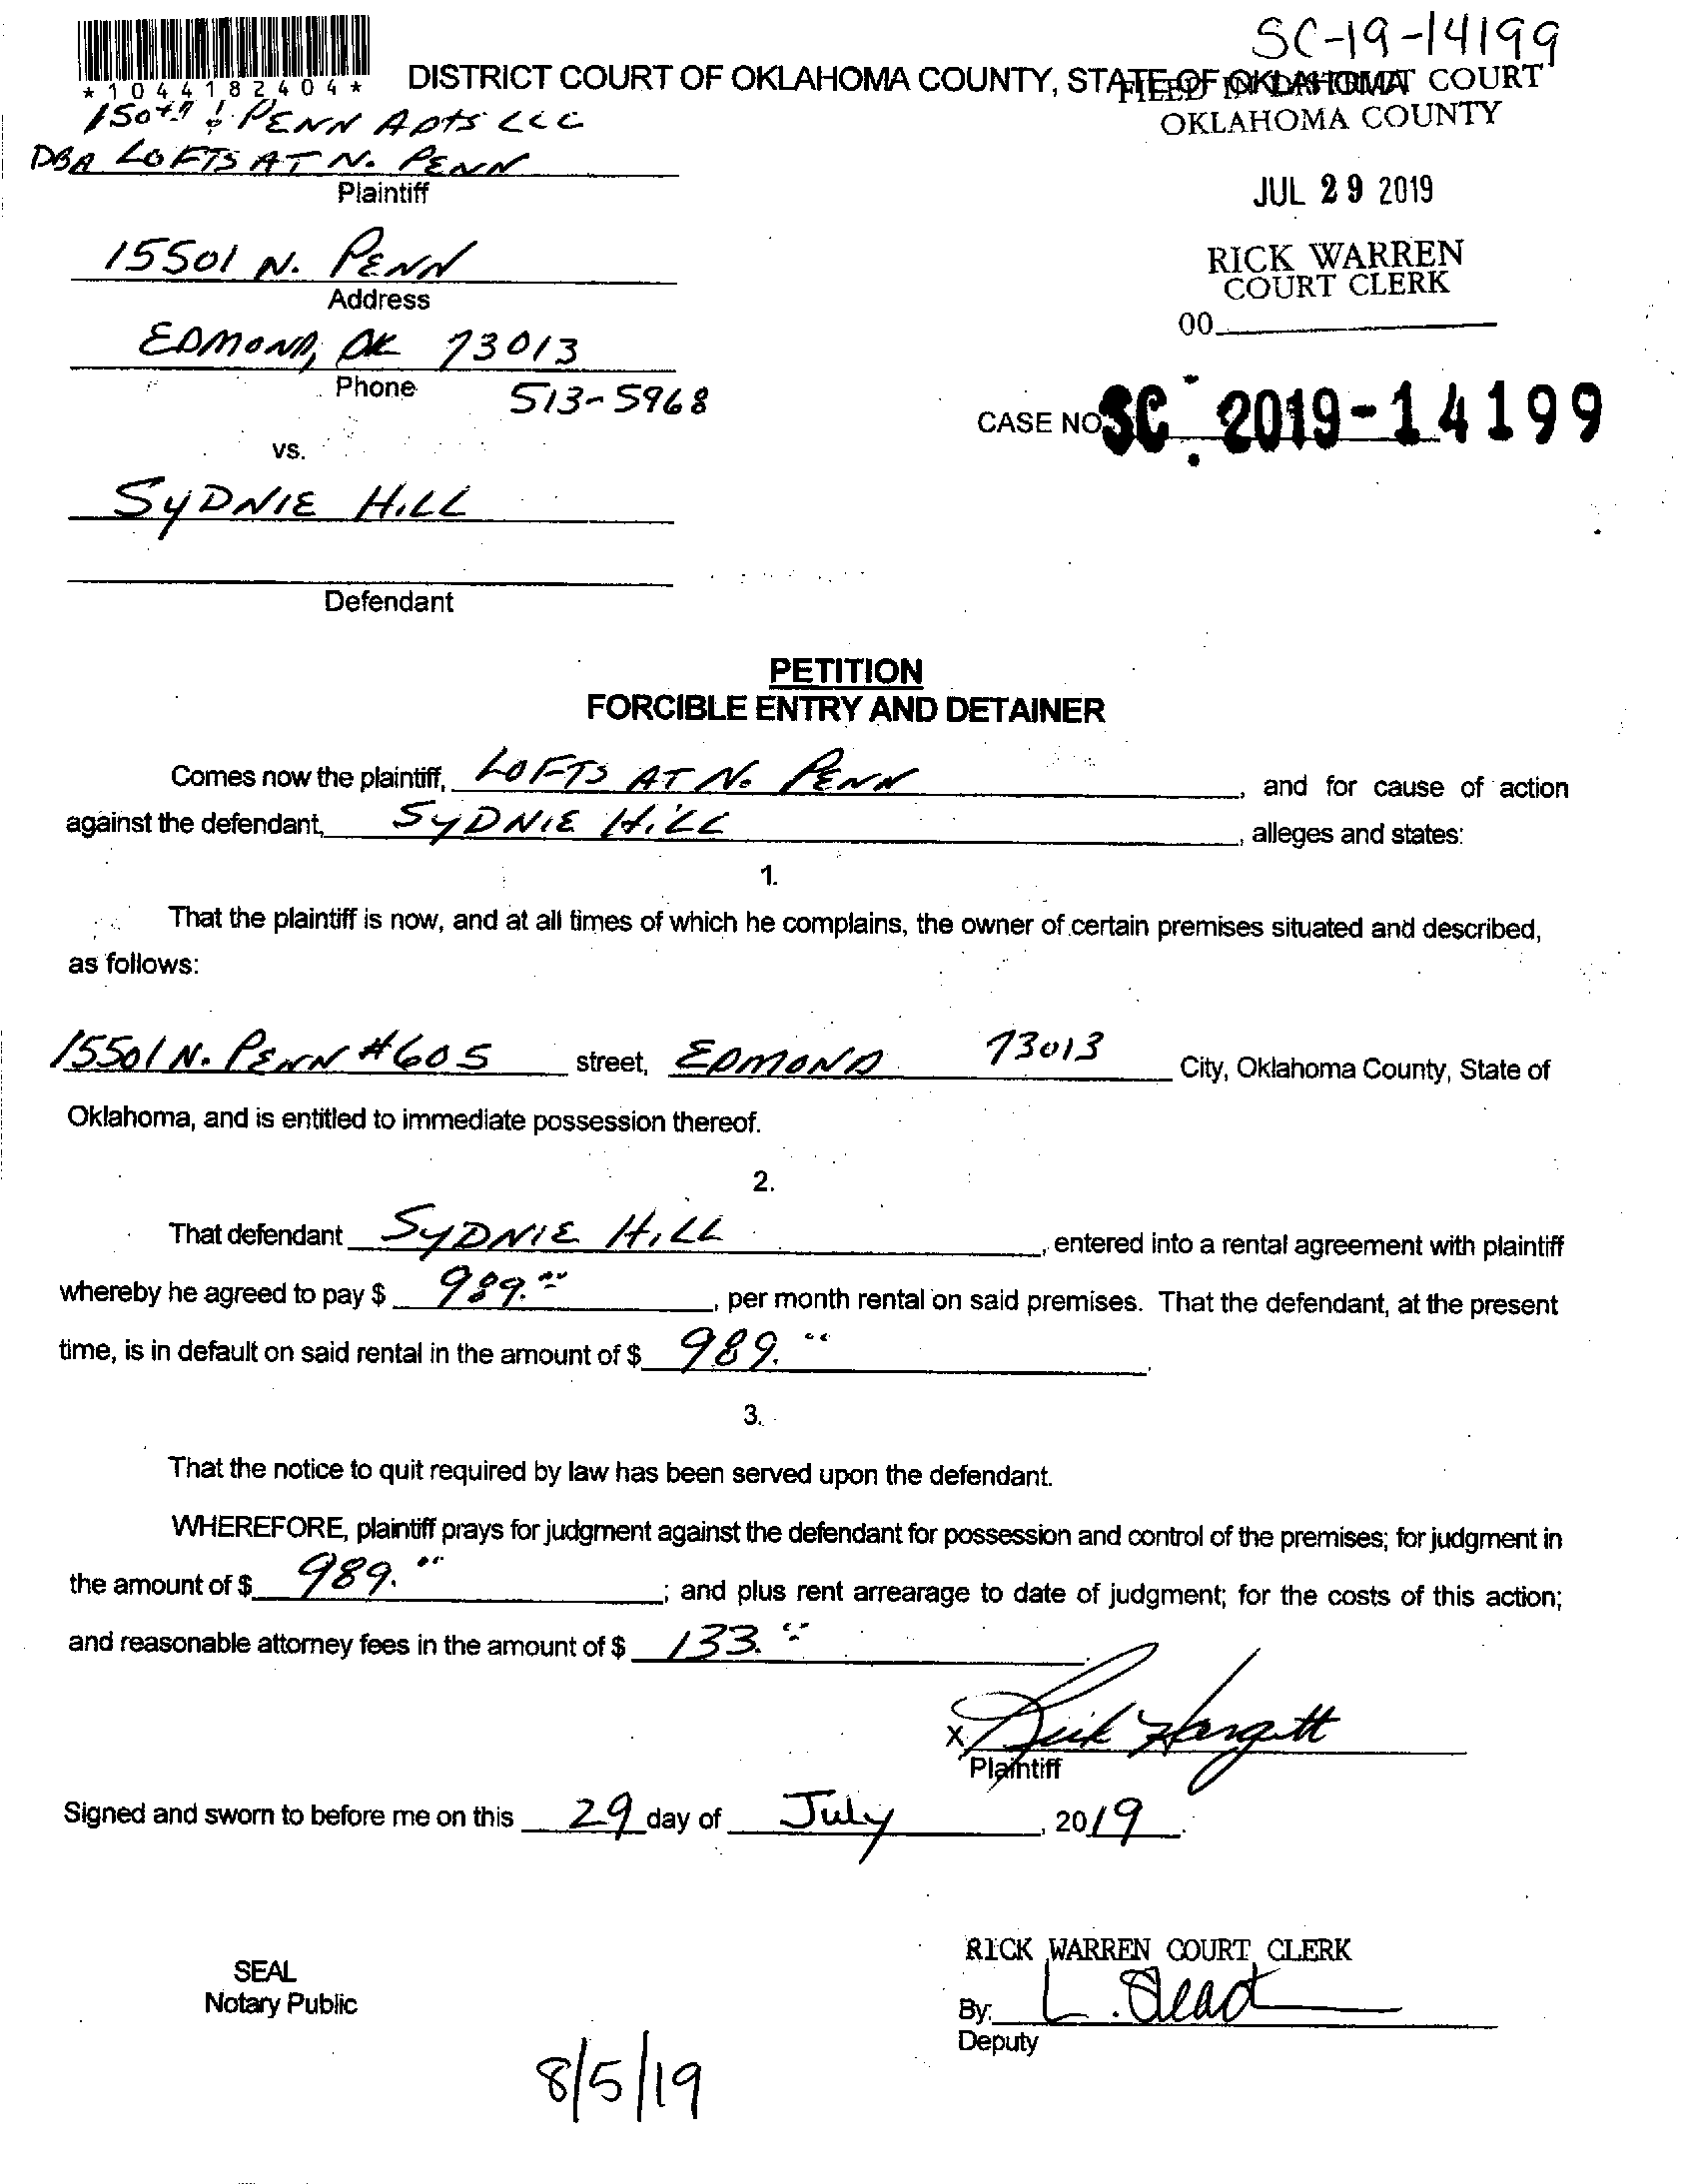 SC-19-14199
*1044182404*
DISTRICT COURT OF OKLAHOMA COUNTY, STATE OF OKLAHOMA
FILED IN DISTRICT COURT
OKLAHOMA COUNTY
150th & PENN APTS LLC
DBA LOFTS AT N. PENN
Plaintiff
JUL 29 2019
15501 N. PENN
Address
RICK WARREN
COURT CLERK
00
EDMOND, OK 73013
Phone 513-5968
CASE NO. SC 2019-14199
vs.
SYDNIE HILL
Defendant
PETITION
FORCIBLE ENTRY AND DETAINER
Comes now the plaintiff, LOFTS AT N. PENN, and for cause of action
against the defendant, SYDNIE HILL, alleges and states:
1.
That the plaintiff is now, and at all times of which he complains, the owner of certain premises situated and described,
as follows:
15501 N. PENN #605 street, EDMOND 73013 City, Oklahoma County, State of
Oklahoma, and is entitled to immediate possession thereof.
2.
That defendant SYDNIE HILL, entered into a rental agreement with plaintiff
whereby he agreed to pay $ 989.00, per month rental on said premises. That the defendant, at the present
time, is in default on said rental in the amount of $ 989.00.
3.
That the notice to quit required by law has been served upon the defendant.
WHEREFORE, plaintiff prays for judgment against the defendant for possession and control of the premises; for judgment in
the amount of $ 989.00; and plus rent arrearage to date of judgment; for the costs of this action;
and reasonable attorney fees in the amount of $ 133.00.
X Rick Hargett
Plaintiff
Signed and sworn to before me on this 29 day of July, 2019.
RICK WARREN COURT CLERK
SEAL
Notary Public
By: L.
Deputy
8/5/19